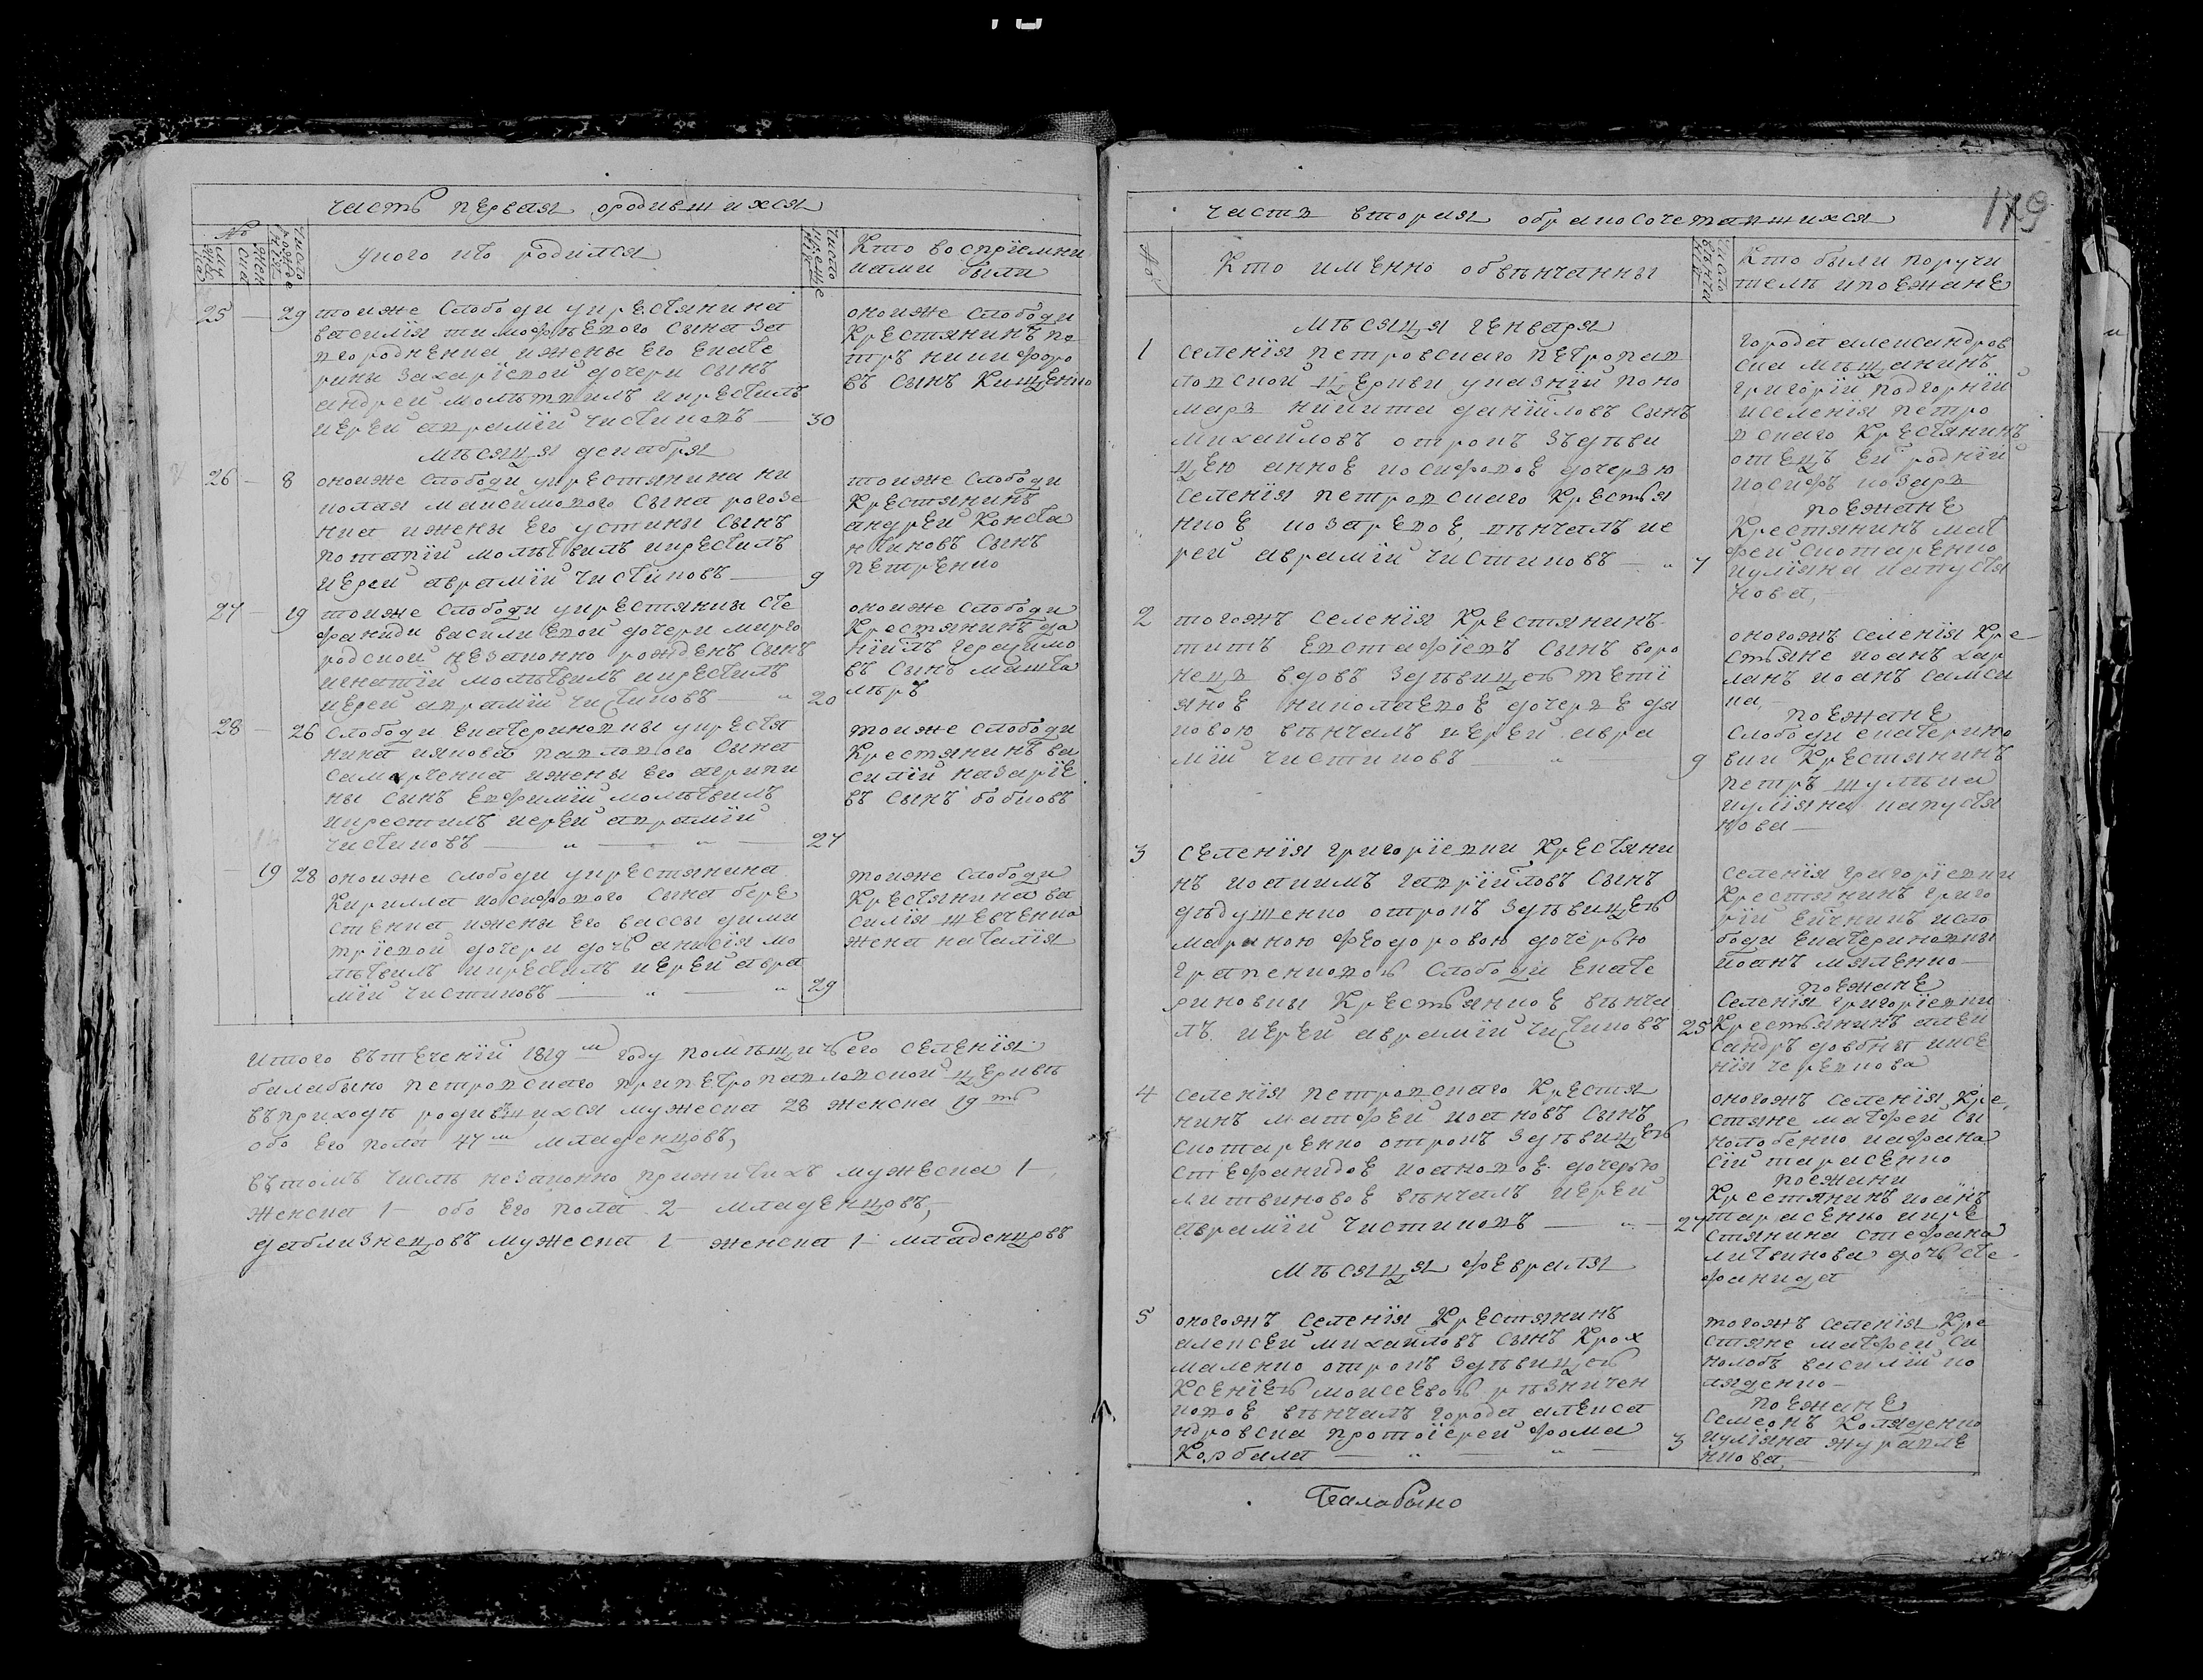 часть первая ородившихся
№
у кого кто родился
Кто воспрiемни
ками были
25 — 29 тоиже Слободи укрестянина
василiя тимофѣевого сына за
вгородненка ижены его Екате
рины захарiевой дочери сынъ
андрей молитвилъ икрестилъ
иерей аврамiй Чистиковъ — 30
оноиже слободи
Крестянинъ пе
тръ никифоро
въ сынъ Кищенко
мѣсяця декабря
26 — 8 оноиже слободи укрестянина ни
колая максимового сына рогозе
нка ижены его устины сынъ
потапiй молитвилъ икрестилъ
иерей аврамiй чистиковъ — 9
тоиже слободи
Крестянинъ
андрейКонста
нтиновъ сынъ
петренко
27 — 19 тоиже слободи укрестянки сте
фаниди василиевой дочери мирго
родской незаконно рожденъ сынъ
игнатiй молитвилъ икрестилъ
иерей аврамiй чистиковъ — 20
оноиже слободи
Крестянинъ да
нiилъ герасимо
въ сынъ машта
лѣръ
28 — 26 слободи Екатериновки укрестя
нина иякова павлового сына
самарченка ижены его агрипи
ны сынъ Ефимiй молитвилъ
икрестилъ иерей аврамiй
чистиковъ — 27
тоиже слободи
Крестянинъ ва
силiй назарiе
въ сынъ бобковъ
— 19 28 оноиже слободи укрестянина
Кирилла иосифового сына бере
стенка ижени его вассы дими
трiевой дочери дочь анисiя мо
литвилъ икрестилъ иерей авра
мiй чистиковъ — 29
тоиже слободи
Крестянина ва
силiя шевченка
жена наталiя
итого въ теченiи 1819 году помѣщичьего селенiя
балабыно петровскаго припетропавловской церквѣ
въ приходѣ родившихся мужеска 28 женска 19
обо его пола 47 младенцовъ,
въ томъ числѣ незаконно прижитихъ мужеска 1 —
женска 1 — обо его пола 2 — младенцовъ,
даблизнецовъ мужеска 1 — женска 1 — младенцовъ
179
часть вторая обракосочетавшихся
№
Кто именно обвѣнчанны
Кто были поручи
тели ипоежане
мѣсяця генваря
1 селенiя петровскаго петропав
ловской церкви указнiй поно
марь никита данiиловъ сынъ
михайловъ отрокъ здѣви
цею анное иосифовое дочерью
селенiя петровскаго Крестья
нкое козаревое, вѣнчалъ ие
рей аврамiй чистиковъ — 7
города александров
ска мѣщанинъ
григорiй подгорнiй
иселенiя петро
вскаго Крестянинъ
отецъ ей роднiй
иосифъ козарь
поежане
Крестянинъ мат
фей скотаренко
иулiяна капустя
нова,
2 тогожъ селенiя Крестянинъ
титъ евстафiевъ сынъ воро
нецъ вдовъ здѣвицею тетi
яное николаевое дочерье дя
ковою вѣнчалъ иерей авра
мiй чистиковъ — 9
оногожъ селенiя Кре
стьяне иоанъ хар
ланъ иоанъ самси
ка,
поежане
слободи екатерино
вки Крестянинъ
петръ шулика
иулiяна капустя
нова —
3 селенiя григорiевки Крестяни
нъ иоакимъ гаврiиловъ сынъ
дѣдушенко отрокъ здѣвицею
мариною феодоровою дочерью
слободи Екате
риновки Крестьянкое вѣнча
лъ иерей аврамiй чистиковъ 25
селенiя григорiевки
Крестянинъ григо
рiй исло
боди екатериновки
иоанъ маленко —
поежане
селенiя григорiевки
Крестьянинъ алек
сандръ довбня иксе
нiя черевкова
4 селенiя петровскаго Крестя
нинъ матфей иоановъ сынъ
скотаренко отрокъ здѣвицею
стефанидое иоановое дочерью
литвиновое вѣнчалъ иерей
аврамiй чистиковъ — 27
оногожъ селенiя Кре
стяне матфей си
нолобенко иафана
сiй тарасенко
поежани
Крестянинъ иоанъ
тарасенко икре
стянина стефана
литвинова дочь сте
фанида
мѣсяця февраля
5 оногожъ селенiя Крестянинъ
алексей михайловъ сынъ Крох
маленко отрокъ здѣвицею
Ксенiею моисеевою рѣзничен
ковое вѣнчалъ города алекса
ндровска протоiерей фома
Корбала — 3
тогожъ селенiя Кре
стяне матфей си
нолобъ василiй ко
ляденко —
поежане
семеонъ Коляденко
иулiяна журавле
нкова,
Балабыно